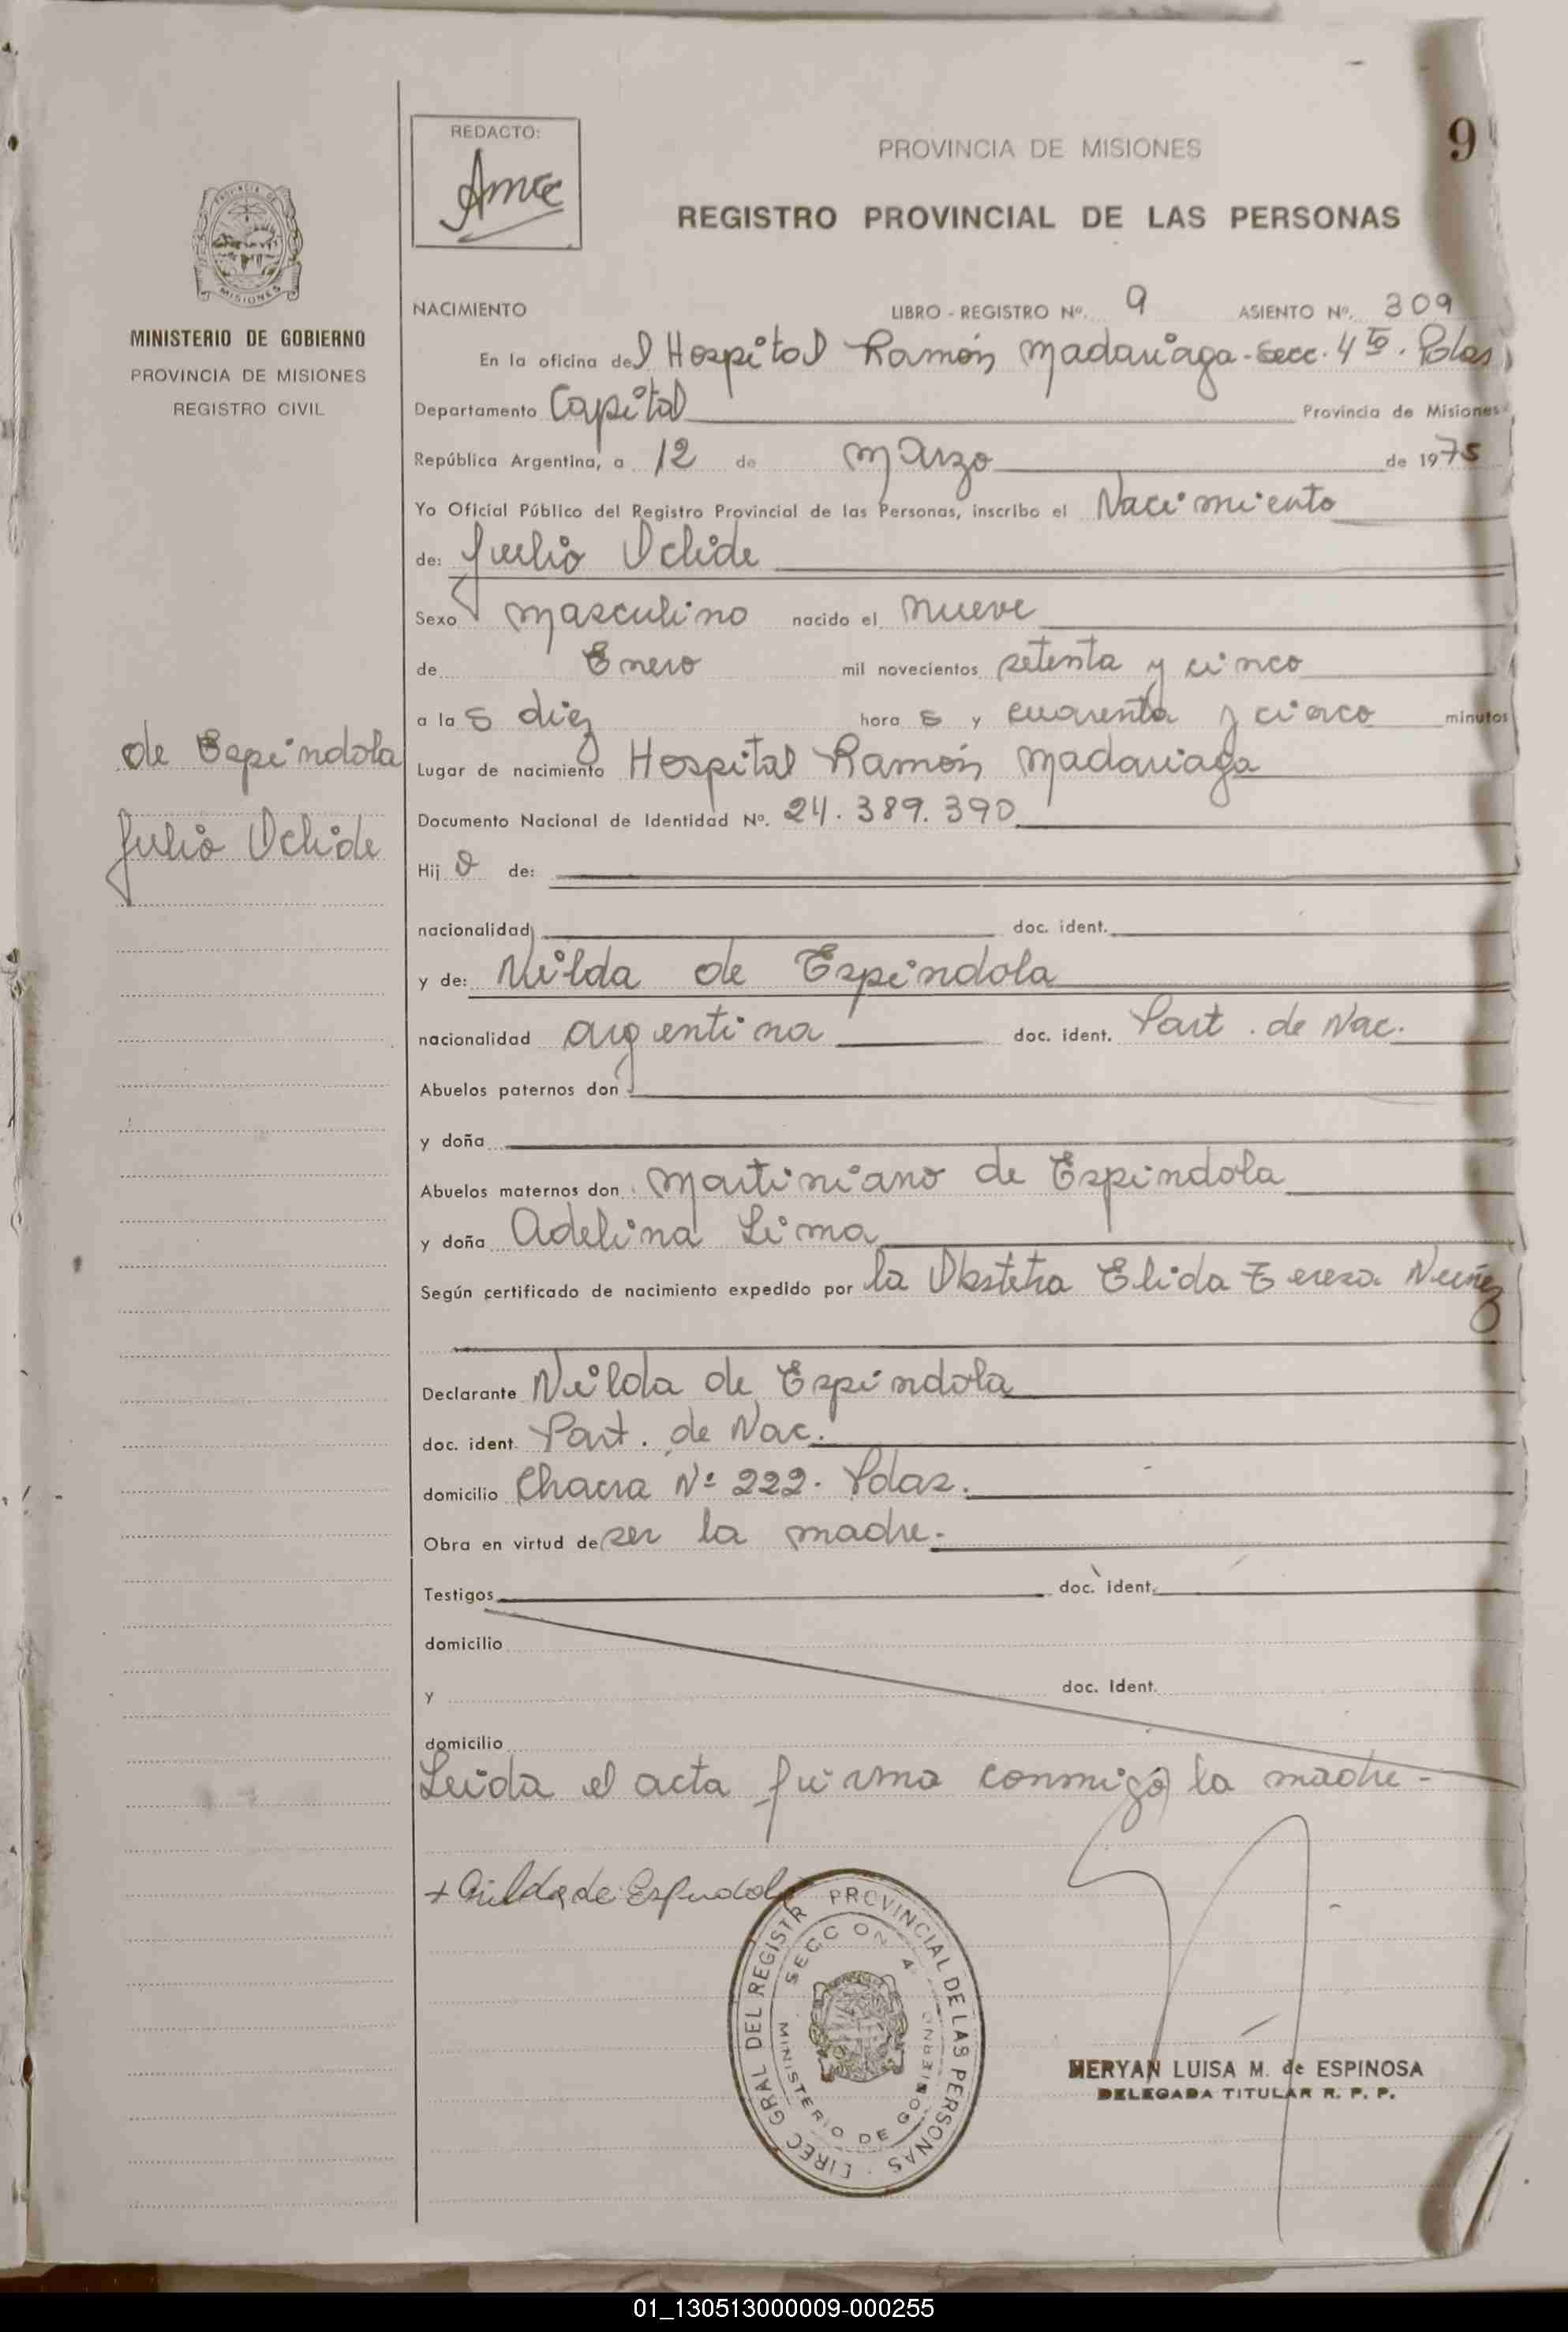 REDACTO:
PROVINCIA DE MISIONES
9
REGISTRO PROVINCIAL DE LAS PERSONAS
MINISTERIO DE GOBIERNO
PROVINCIA DE MISIONES
REGISTRO CIVIL
NACIMIENTO LIBRO - REGISTRO Nº. 9 ASIENTO Nº. 309
En la oficina del Hospital Ramón Madariaga - Secc. 4to. Pdas
Departamento Capital Provincia de Misiones
República Argentina, a 12 de Marzo de 1975
Yo Oficial Público del Registro Provincial de las Personas, inscribo el Nacimiento
de: Julio Oclide
Sexo masculino nacido el nueve
de Enero mil novecientos setenta y cinco
a las diez horas y cuarenta y cinco minutos
de Espindola
Lugar de nacimiento Hospital Ramón Madariaga
Documento Nacional de Identidad Nº. 24.389.390
Julio Oclide
Hijo de:
nacionalidad doc. ident.
y de: Nilda de Espindola
nacionalidad argentina doc. ident. Part. de Nac.
Abuelos paternos don
y doña
Abuelos maternos don Martiniano de Espindola
y doña Adelina Lima
Según certificado de nacimiento expedido por la Obstetra Elida Teresa Nuñez
Declarante Nilda de Espindola
doc. ident. Part. de Nac.
domicilio Chacra Nº 222. Pdas.
Obra en virtud de ser la madre.
Testigos doc. ident.
domicilio
y doc. Ident.
domicilio
Leida el acta firma conmigo la madre -
+ Nilda de Espindola
DIREC GRAL DEL REGISTR PROVINCIAL DE LAS PERSONAS
SECC ON 4
MINISTERIO DE GOBIERNO
MERYAN LUISA M. de ESPINOSA
DELEGADA TITULAR R. P. P.
01_130513000009-000255